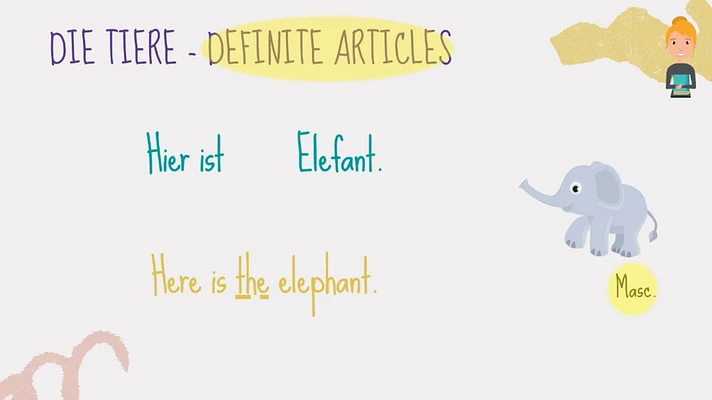 DIE TIERE - DEFINITE ARTICLES
Hier ist Elefant.
Here is the elephant.
Masc.